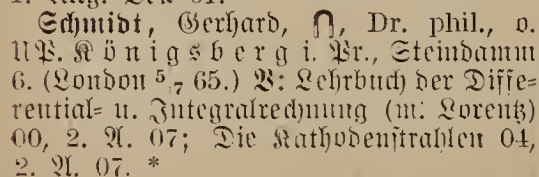 Schmidt, Gerhard, ⋂, Dr. phil., o.
UP. Königsberg i. Pr., Steindamm
6. (London 5/7 65.) V: Lehrbuch der Diffe=
rential= u. Integralrechnung (m: Lorentz)
00, 2. A. 07; Die Kathodenstrahlen 04,
2. A. 07. *